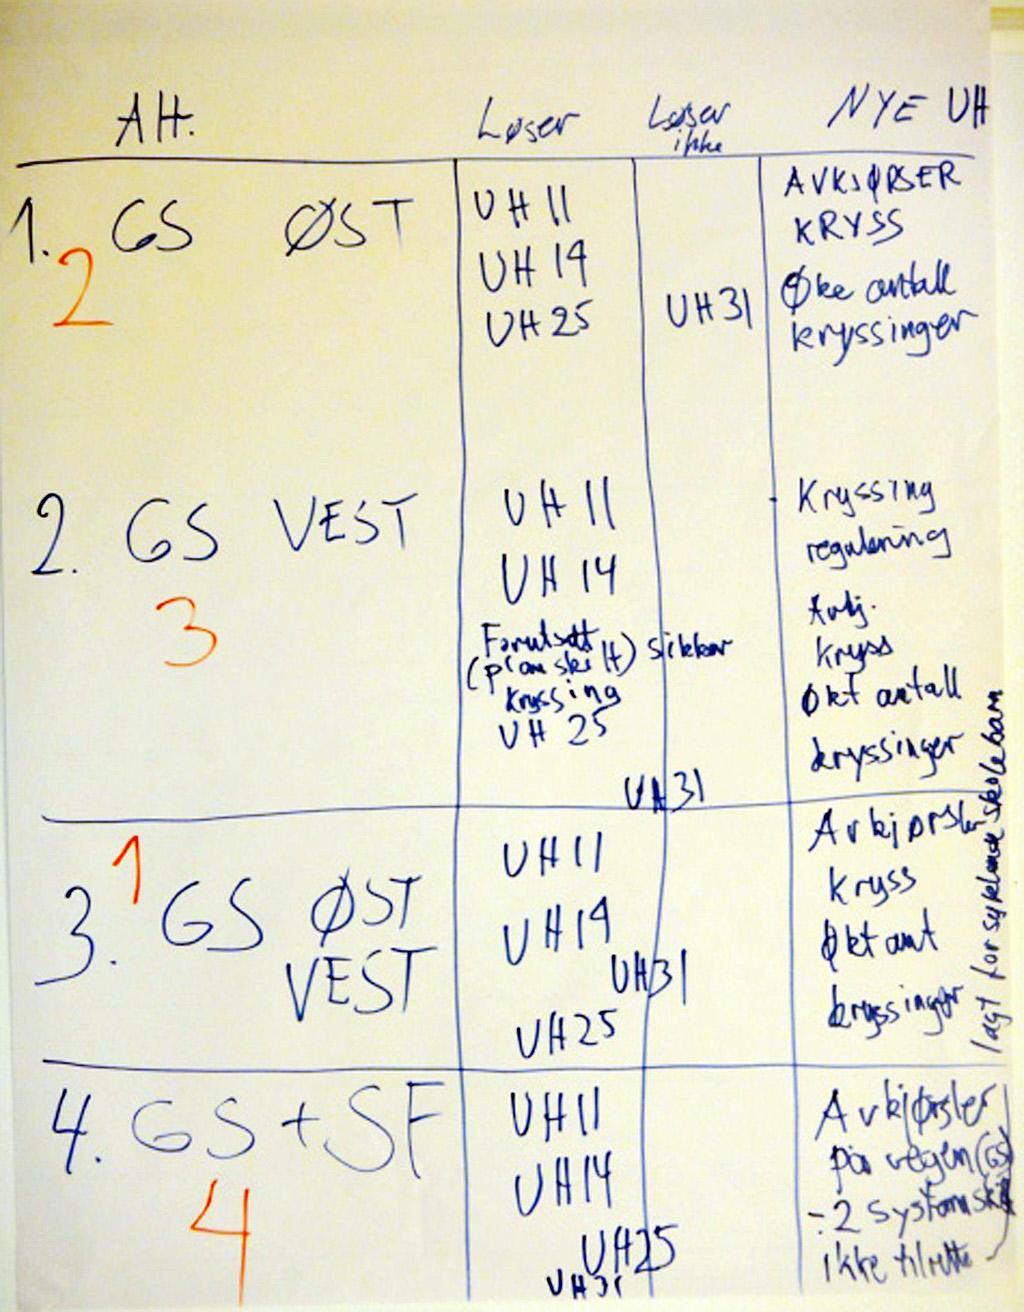 Alt.
Løser
Løser
ikke
NYE UH
1. GS ØST
2
UH 11
UH 14
UH 25
UH 31
AVKJØRSER
KRYSS
Øke antall
kryssinger
2. GS VEST
3
UH 11
UH 14
Forutsatt
(planskilt) sikker
kryssing
UH 25
UH 31
Kryssing
regulering
Avkj.
kryss
økt antall
kryssinger
3. GS ØST
VEST
1
UH 11
UH 14
UH 31
UH 25
Avkjørsler
kryss
økt ant
kryssinger
4. GS + SF
4
UH 11
UH 14
UH 25
UH 31
Avkjørsler
på vegen (GS)
- 2 systemskift
ikke tilrette-
lagt for syklende skolebarn